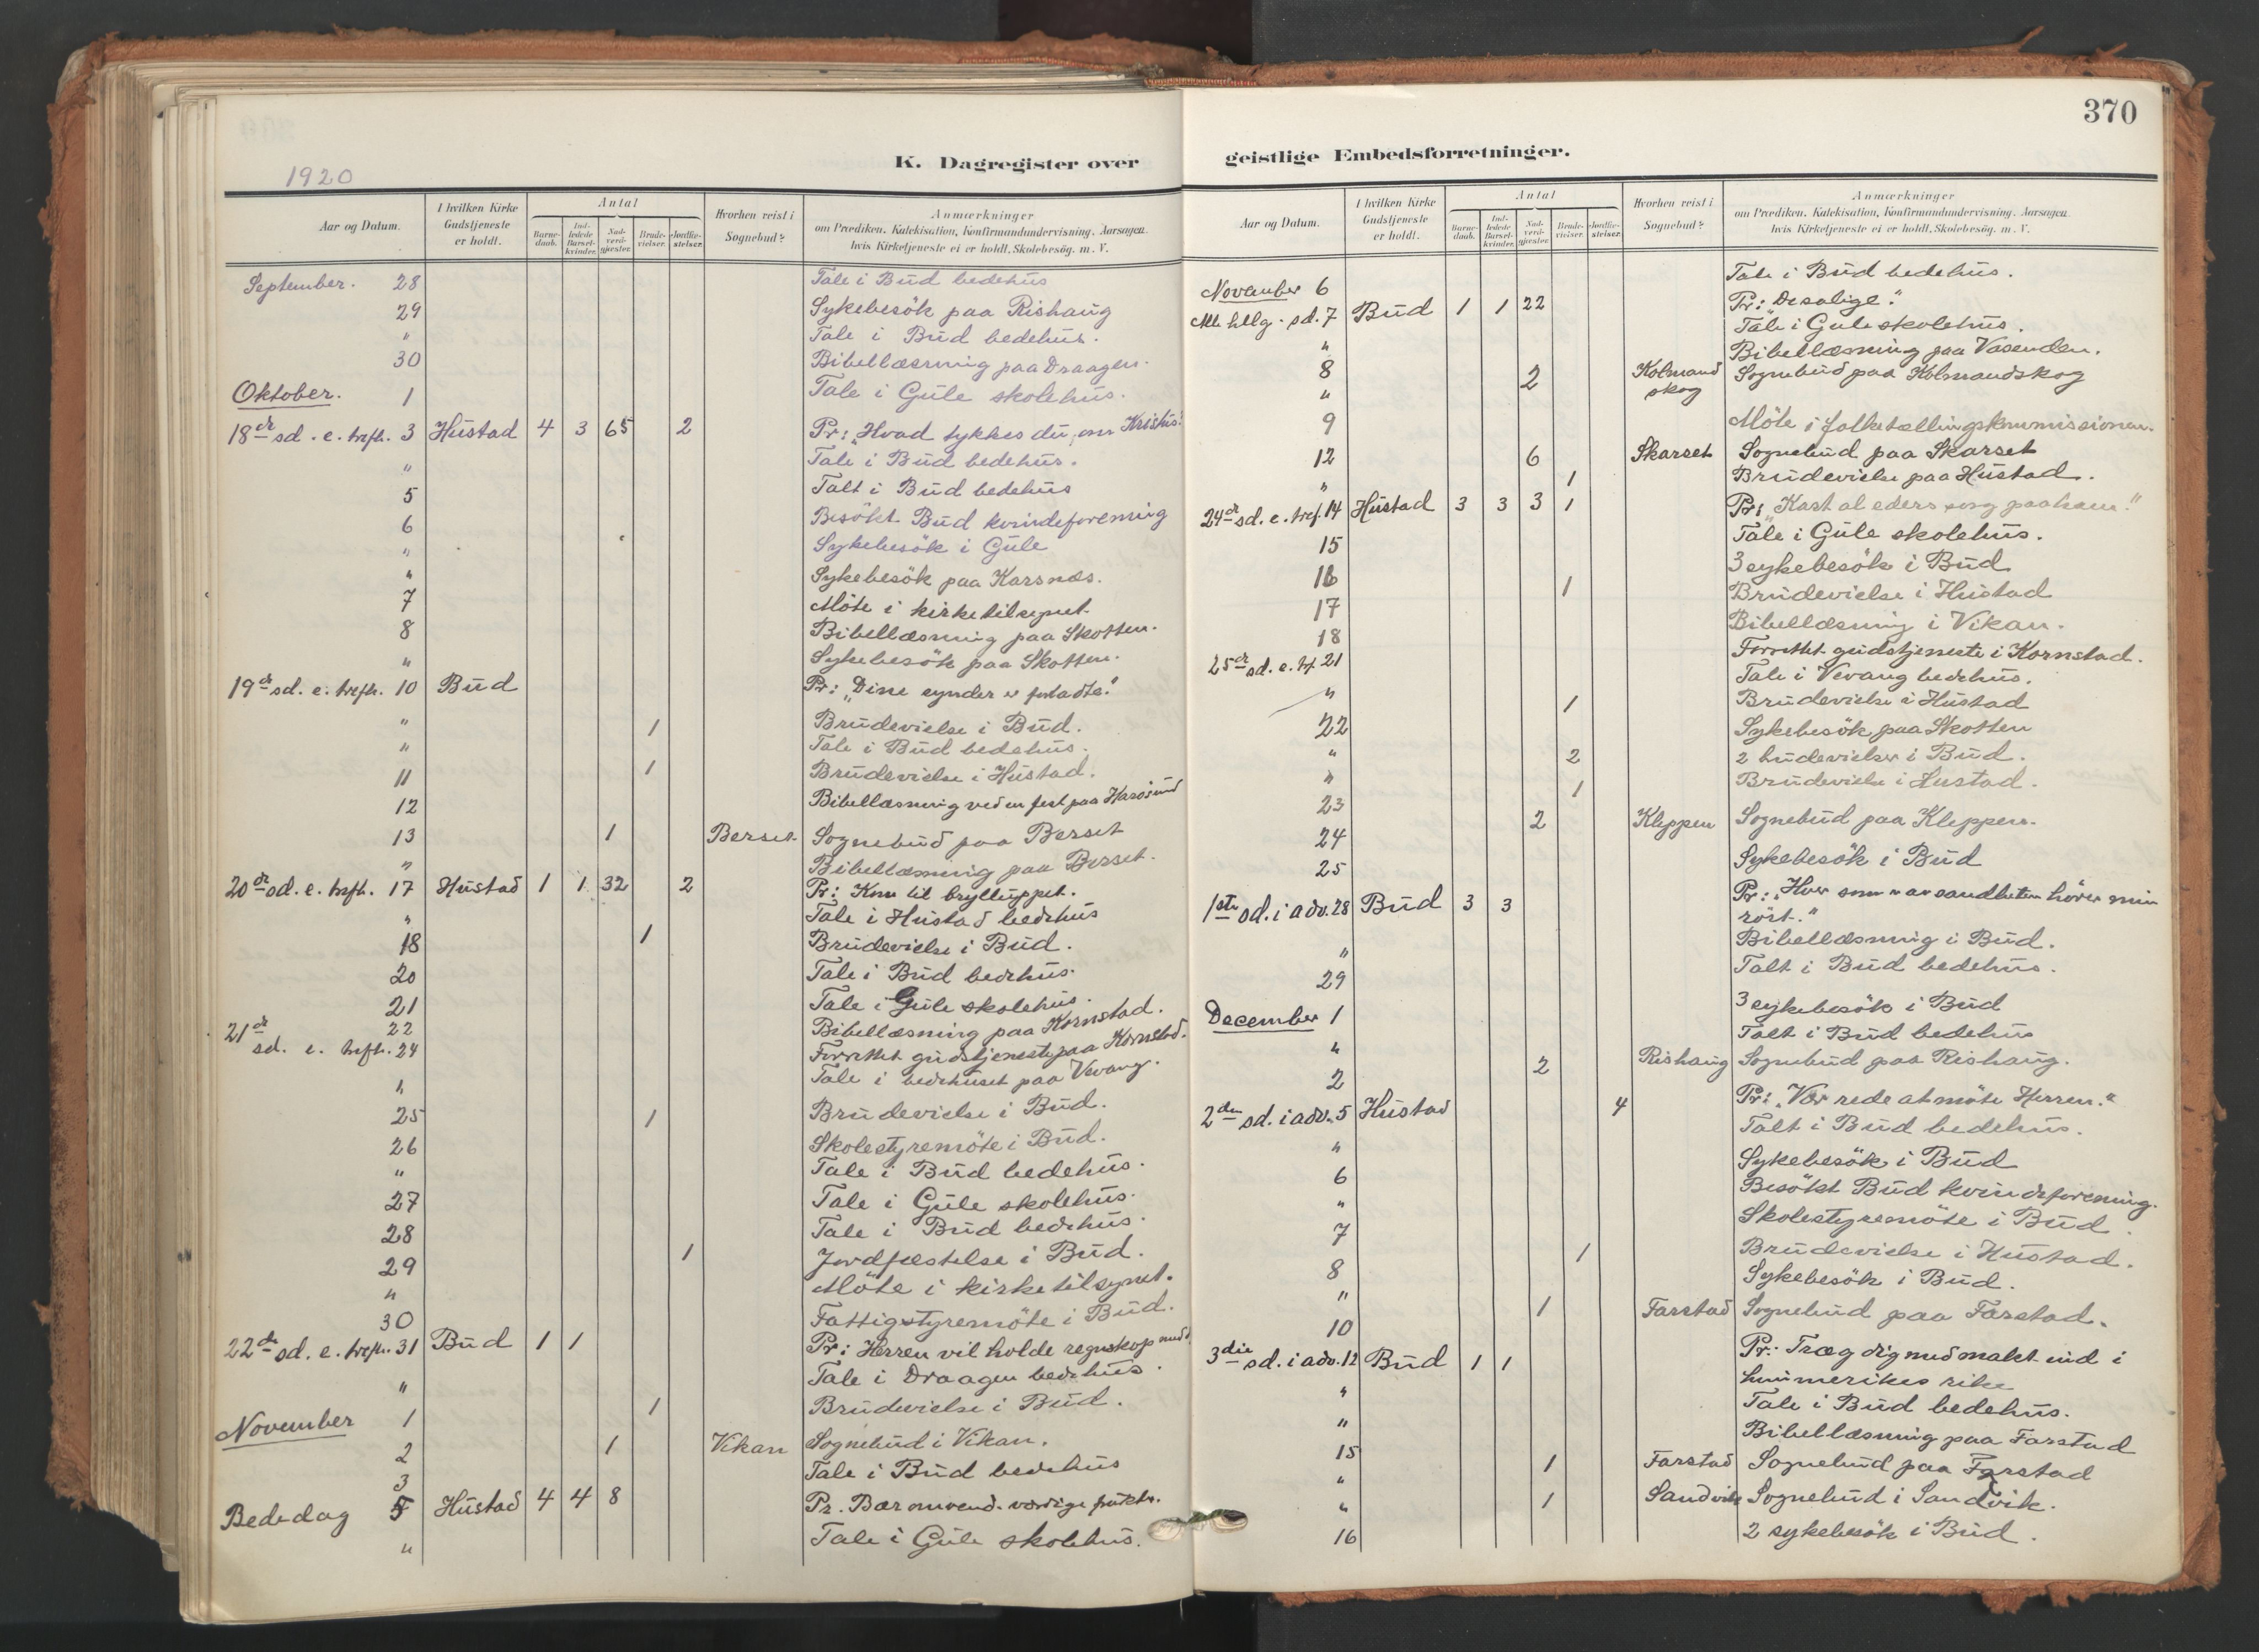 1920
K. Dagregister over
Aar og Datum. I hvilken Kirke Gudstjeneste er holdt. Antal Barnedaab. Indledede Barselkvinder. Nadverdgjester. Brudevielser. Jordfæstelser. Hvorhen reist i Sognebud? Anmærkninger om Prædiken, Katekisation, Konfirmandundervisning, Aarsagen, hvis Kirketjeneste ei er holdt, Skolebesøg, m. V.
September. 28 Tale i Bud bedehus
29 Sykebesök paa Rishaug
" Tale i Bud bedehus.
30 Bibellæsning paa Draagen.
Oktober. 1 Tale i Gule skolehus.
18de sd. e. trefh. 3 Hustad 4 3 65 2 Pr: "Hvad tykkes du om Kristus?
" Tale i Bud bedehus.
5 Talt i Bud bedehus
6 Besökt Bud kvindeforening
" Sykebesök i Gule
" Sykebesök paa Karsnæs.
7 Möte i kirketilsynet.
8 Bibellæsning paa Skotten.
" Sykebesök paa Skotten.
19de sd. e. trefh. 10 Bud Pr: "Dine synder er forladte."
" 1 Brudevielse i Bud.
" Tale i Bud bedehus.
11 1 Brudevielse i Hustad.
12 Bibellæsning ved en fest paa Harösund
13 1 Berset. Sognebud paa Berset
" Bibellæsning paa Berset.
20de sd. e. trefh. 17 Hustad 1 1 32 2 Pr: Kom til bryllupet.
" Tale i Hustad bedehus
18 1 Brudevielse i Bud.
20 Tale i Bud bedehus.
21 Tale i Gule skolehus.
22 Bibellæsning paa Kornstad.
21de sd. e. trefh. 24 Forrettet gudstjeneste paa Kornstad.
" Tale i bedehuset paa Vevang.
25 1 Brudevielse i Bud.
26 Skolestyremöte i Bud.
" Tale i Bud bedehus.
27 Tale i Gule skolehus.
28 Tale i Bud bedehus.
29 1 Jordfæstelse i Bud.
" Möte i kirketilsynet.
30 Fattigstyremöte i Bud.
22de sd. e. trefh. 31 Bud 1 1 Pr: Herren vil holde regnskap med
" Tale i Draagen bedehus.
November 1 1 Brudevielse i Bud.
2 1 Vikan Sognebud i Vikan.
3 Tale i Bud bedehus
Bededag 5 Hustad 4 4 8 Pr. Bær omvend. værdige frukter.
" Tale i Gule skolehus.
370
geistlige Embedsforretninger.
Aar og Datum. I hvilken Kirke Gudstjeneste er holdt. Antal Barnedaab. Indledede Barselkvinder. Nadverdgjester. Brudevielser. Jordfæstelser. Hvorhen reist i Sognebud? Anmærkninger om Prædiken, Katekisation, Konfirmandundervisning, Aarsagen, hvis Kirketjeneste ei er holdt, Skolebesøg, m. V.
November 6 Tale i Bud bedehus.
Alle helg. sd. 7 Bud 1 1 22 Pr: "De salige."
" Tale i Gule skolehus.
8 Bibellæsning paa Vasenden.
" 2 Kolmandskog Sognebud paa Kolmandskog
9 Möte i folketællingskommissionen.
12 6 Skarset Sognebud paa Skarset
" 1 Brudevielse paa Hustad.
24de sd. e. tref. 14 Hustad 3 3 3 1 Pr: "Kast al eders sorg paa ham."
15 Tale i Gule skolehus.
16 3 sykebesök i Bud
17 1 Brudevielse i Hustad
18 Bibellæsning i Vikan.
25de sd. e. tr. 21 Forrettet gudstjeneste i Kornstad.
" Tale i Vevang bedehus.
22 1 Brudevielse i Hustad
" Sykebesök paa Skotten
" 2 2 brudevielser i Bud.
23 1 Brudevielse i Hustad.
24 2 Kleppen Sognebud paa Kleppen.
25 Sykebesök i Bud
1ste sd. i adv. 28 Bud 3 3 Pr: "Hver som er av sandheten hörer min
röst."
" Bibellæsning i Bud.
29 Talt i Bud bedehus.
December 1 3 sykebesök i Bud
" Talt i Bud bedehus
2 2 Rishaug Sognebud paa Rishaug.
2den sd. i adv. 5 Hustad 4 Pr: "Vær rede at möte Herren."
" Talt i Bud bedehus.
6 Sykebesök i Bud
" Besökt Bud kvindeforening.
7 Skolestyremöte i Bud.
8 1 Brudevielse i Hustad.
" Sykebesök i Bud.
10 1 Farstad Sognebud paa Farstad.
3die sd. i adv. 12 Bud 1 1 Pr: Træng dig med makt ind i
himmerikes rike
" Tale i Bud bedehus.
" Bibellæsning paa Farstad
15 1 Farstad Sognebud paa Farstad
" 1 Sandvik Sognebud i Sandvik.
16 2 sykebesök i Bud.